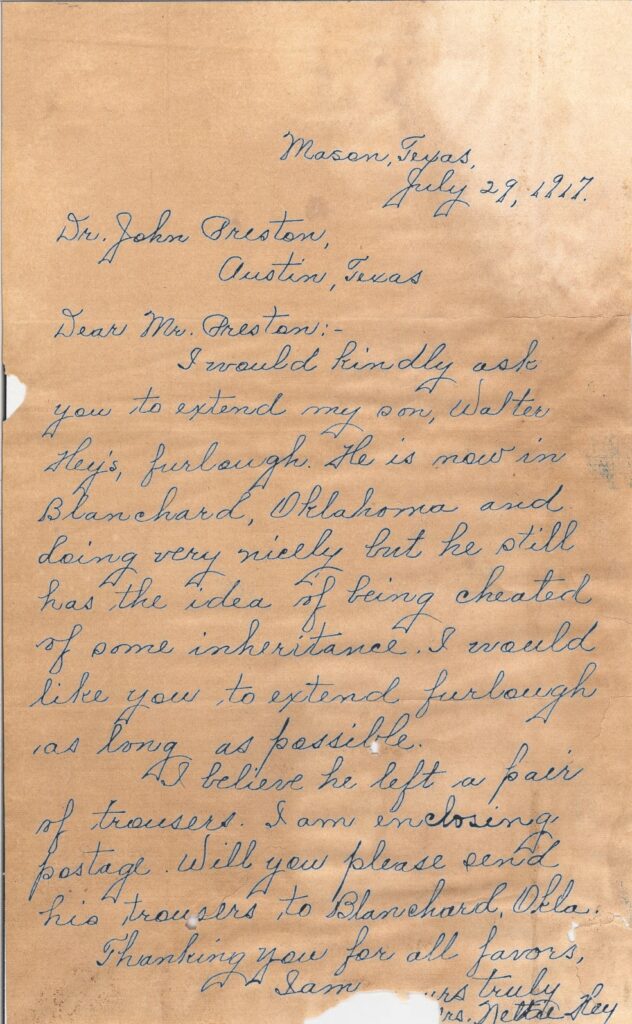 Mason, Texas,
July 29, 1917.
Dr. John Preston,
Austin, Texas
Dear Mr. Preston:-
I would kindly ask
you to extend my son, Walter
Hey's, furlough. He is now in
Blanchard, Oklahoma and
doing very nicely but he still
has the idea of being cheated
of some inheritance. I would
like you to extend furlough
as long as possible.
I believe he left a pair
of trousers. I am enclosing
postage. Will you please send
his trousers to Blanchard, Okla.
Thanking you for all favors,
I am urs truly
rs. Nettie Hey